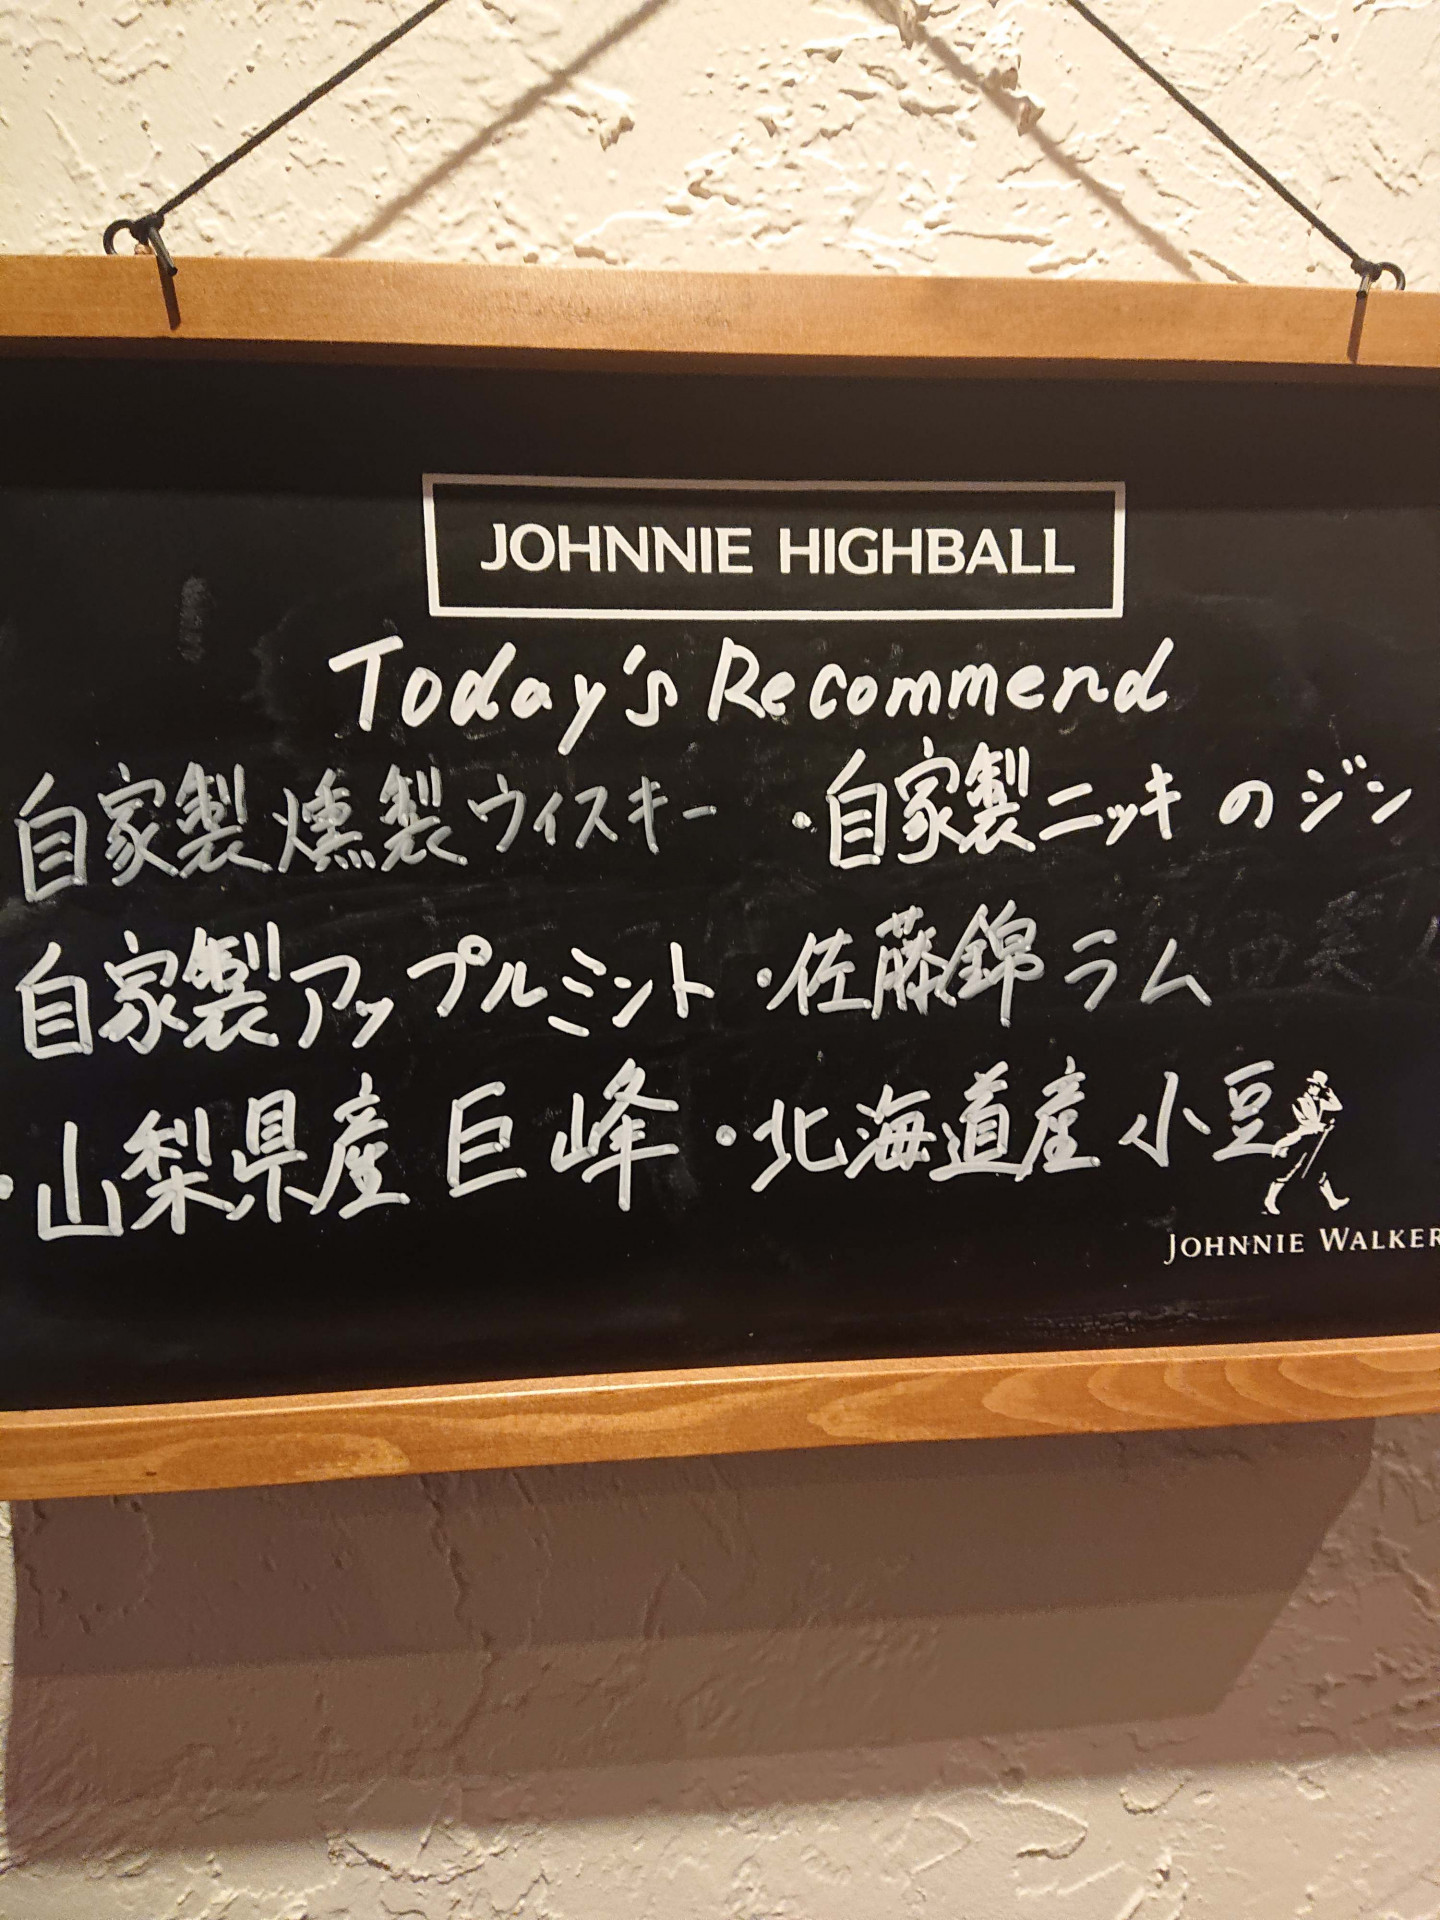 JOHNNIE HIGHBALL
Today's Recommend
自家製燻製ウィスキー ・自家製ニッキのジン
自家製アップルミント ・佐藤錦ラム
・山梨県産 巨峰 ・北海道産 小豆
JOHNNIE WALKER